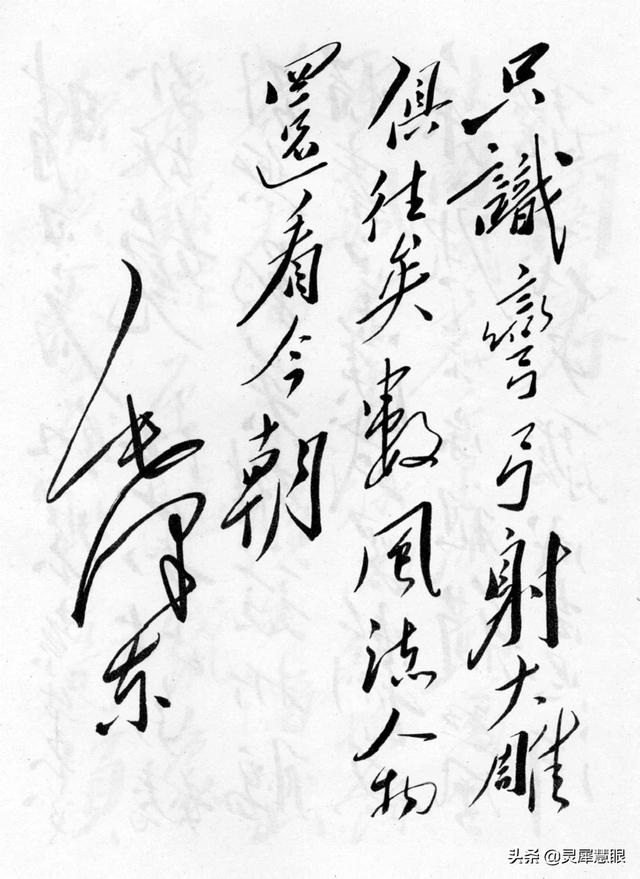 只識彎弓射大雕
俱往矣數風流人物
還看今朝
毛泽东
头条 @灵犀慧眼